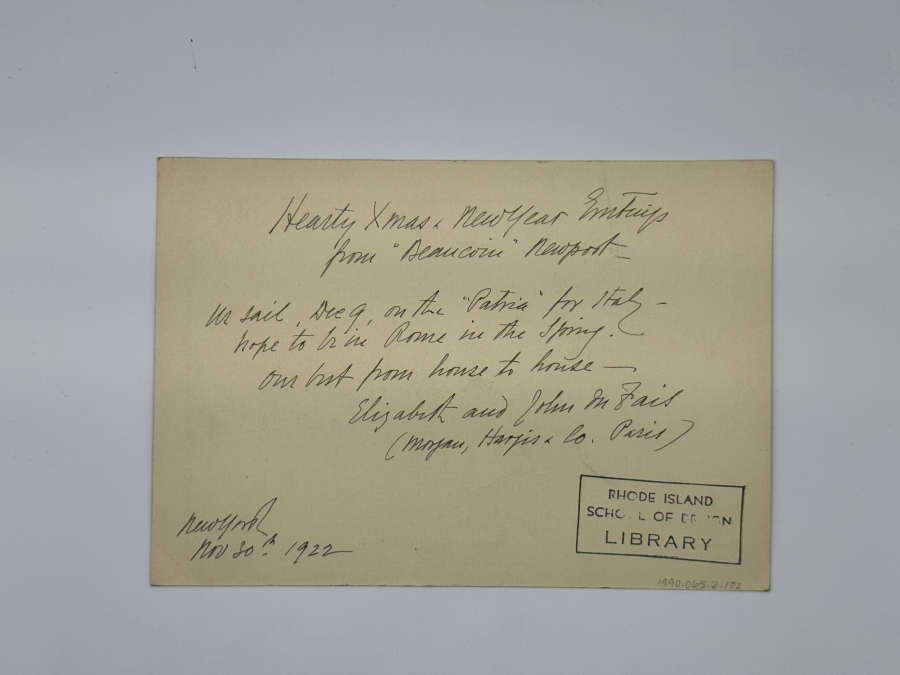 Hearty Xmas & New Year Greetings
from "Beaucoin" Newport—
We sail, Dec 9, on the "Patria" for Italy —
hope to be in Rome in the Spring.
Our best from house to house —
Elizabeth and John
(Morgan, Harjes & Co. Paris)
New York
Nov 30th 1922
RHODE ISLAND
SCHOOL OF DESIGN
LIBRARY
1990.065.2.172